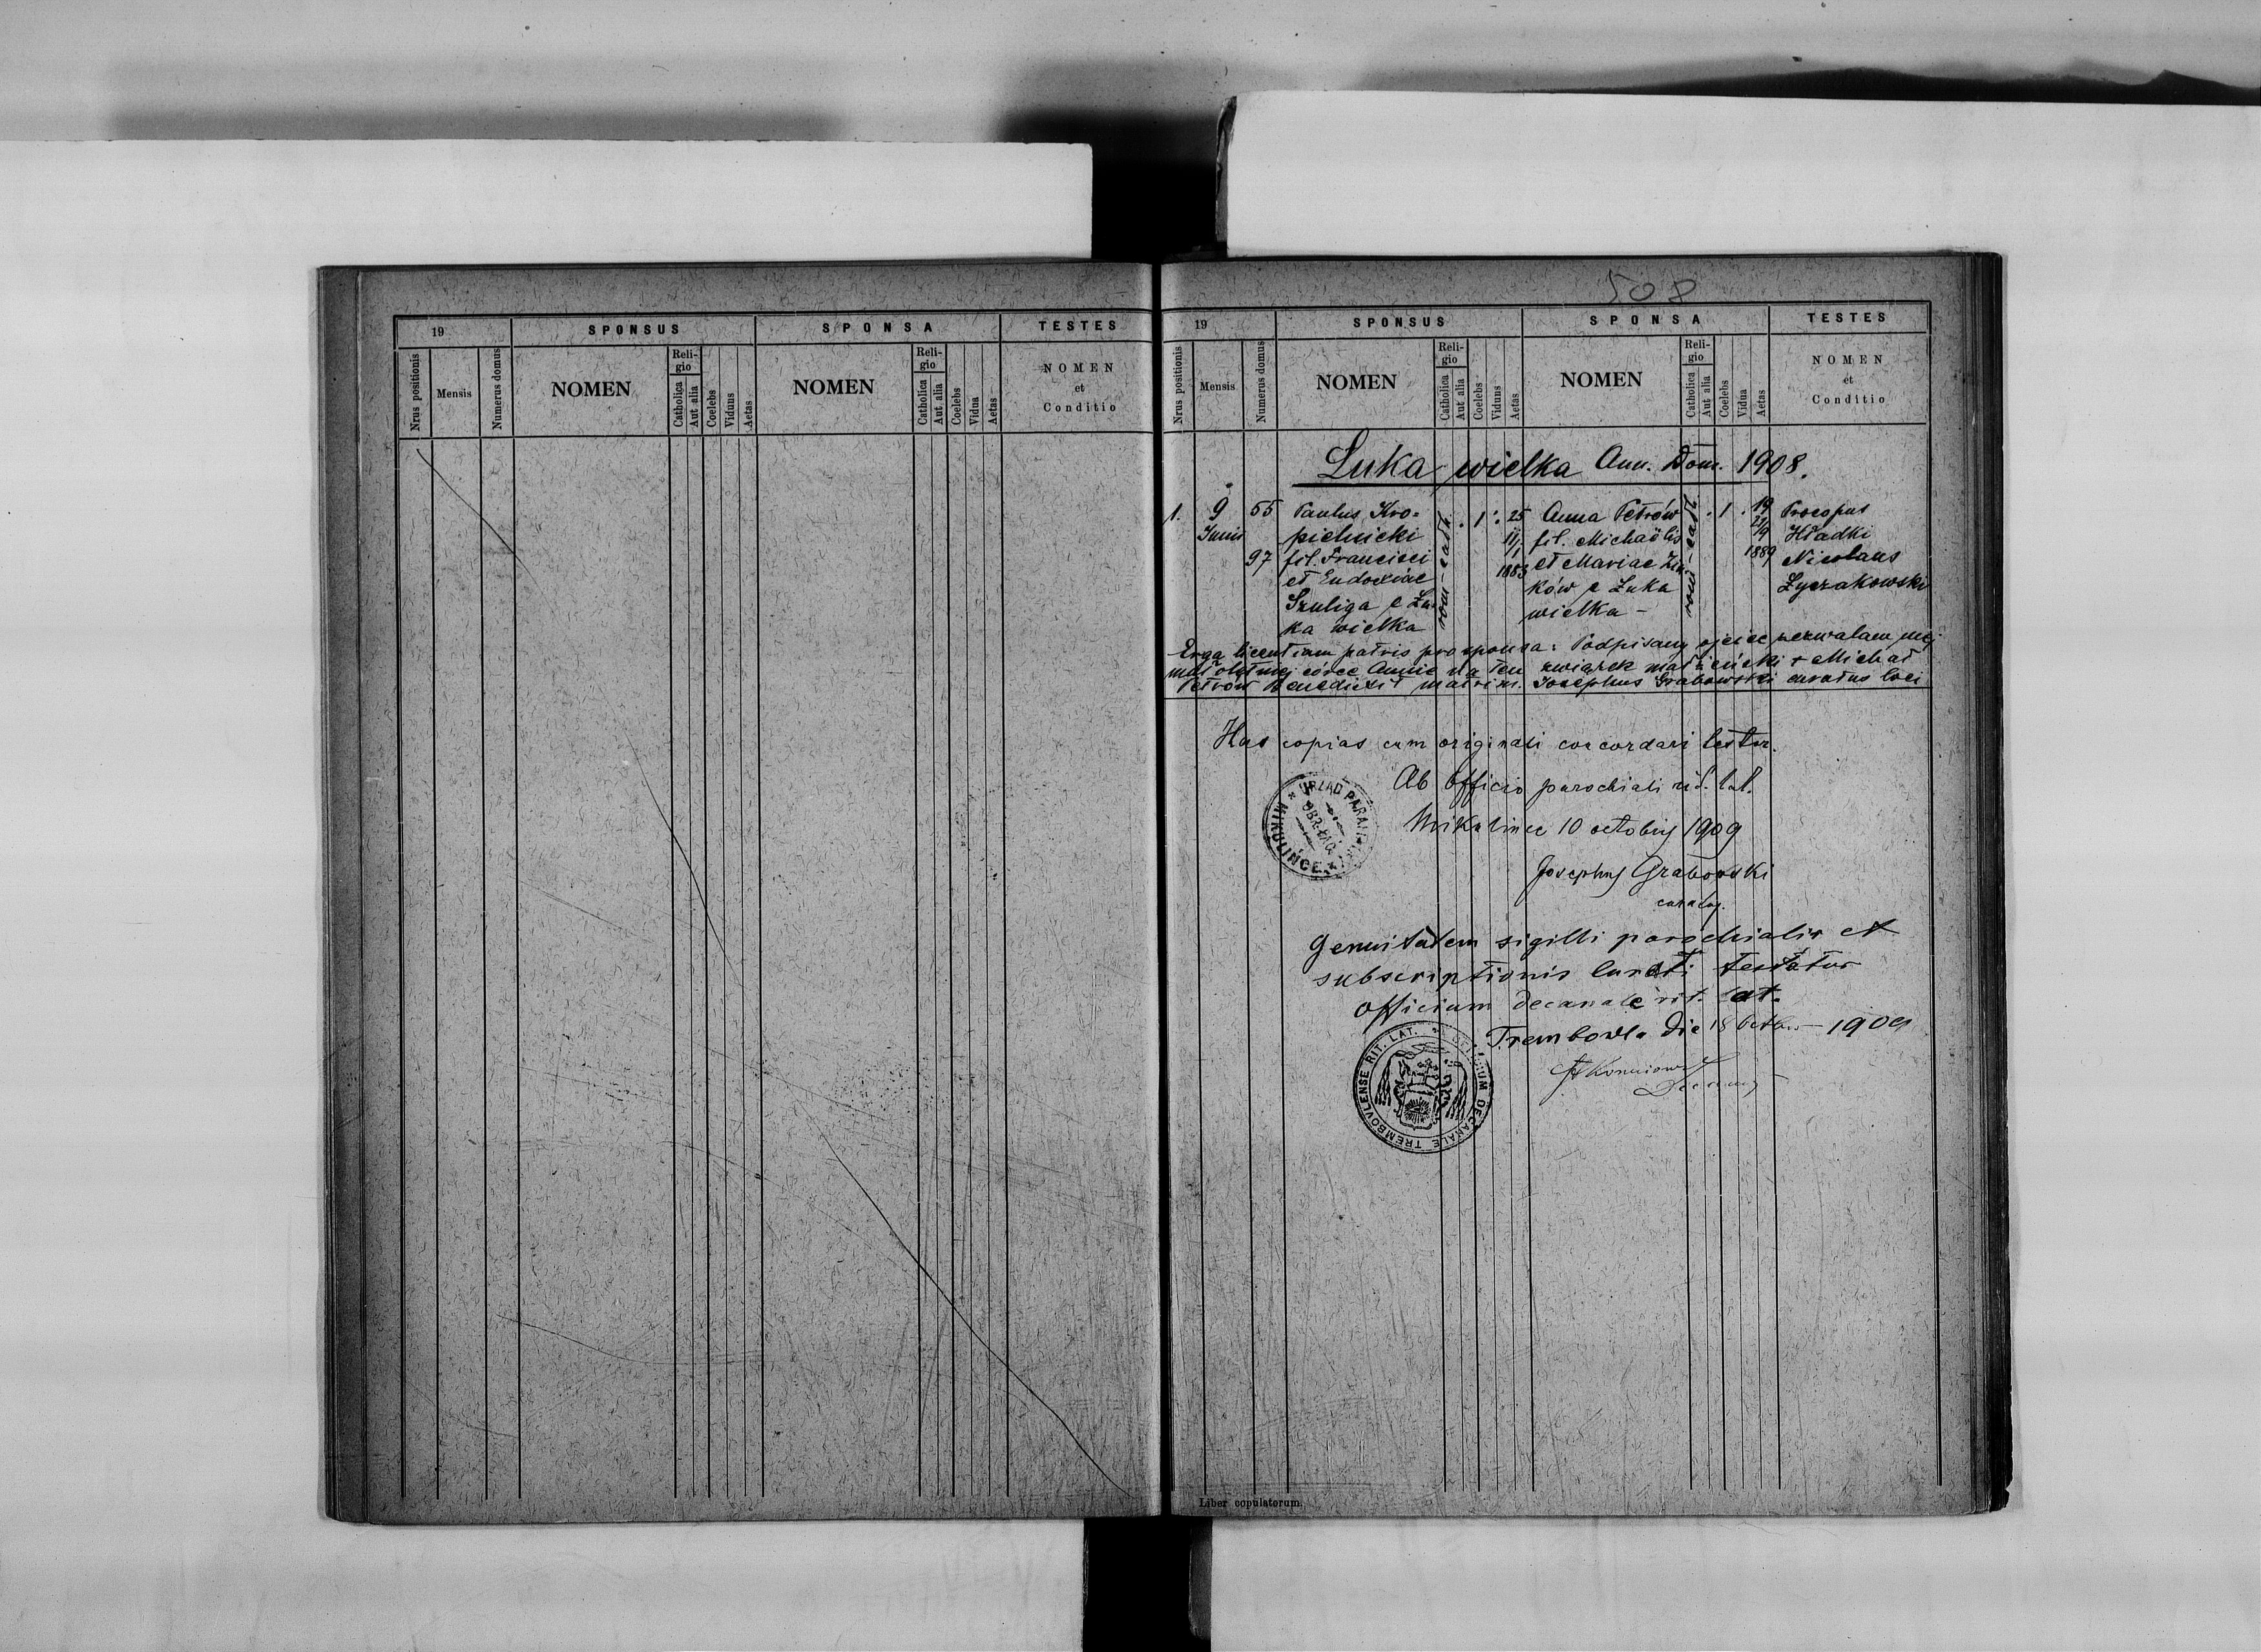 19
SPONSUS
SPONSA
TESTES
Nrus positionis
Mensis
Numerus domus
NOMEN
Reli-
gio
Catholica
Aut alia
Coelebs
Viduus
Aetas
NOMEN
Reli-
gio
Catholica
Aut alia
Coelebs
Vidua
Aetas
NOMEN
et
Conditio
508
19
SPONSUS
SPONSA
TESTES
Nrus positionis
Mensis
Numerus domus
NOMEN
Reli-
gio
Catholica
Aut alia
Coelebs
Viduus
Aetas
NOMEN
Reli-
gio
Catholica
Aut alia
Coelebs
Vidua
Aetas
NOMEN
et
Conditio
Łuka wielka Ann. Dom. 1908.
1.
9
Junii
55
97
Paulus Kro-
pielnicki
fil. Francisci
et Eudoxiae
Szuliga e Łu-
ka wielka
rom-cath.
1
25
11/1
1883
Anna Petrów
fil. Michaëlis
et Mariae
ków e Łuka
wielka -
rom-cath
1
19
21/9
1889
Procopus
Hładki
Nicolaus
Łyczakowski
Erga licentiam patris pro sponsa: Podpisany ojciec zezwalam mej
małoletniej córce Annie na ten związek małżeński + Michał
Petrów Benedixit matrim. Josephus Grabowski curatus loci
Has copias cum originali concordari testor.
Ab Officio parochiali rit. lat.
Mikulince 10 octobris 1909
Josephus Grabowski
curatus.
URZĄD PARAFIALNY OBR. ŁAC. MIKULINCE
Genuitatem sigilli parochialis et
subscriptionis Curati testatur
Officium decanale rit. lat.
Trembowla die 18 1909
Decanus
OFFICIUM DECANALE TREMBOVLENSE RIT. LAT.
Liber copulatorum.